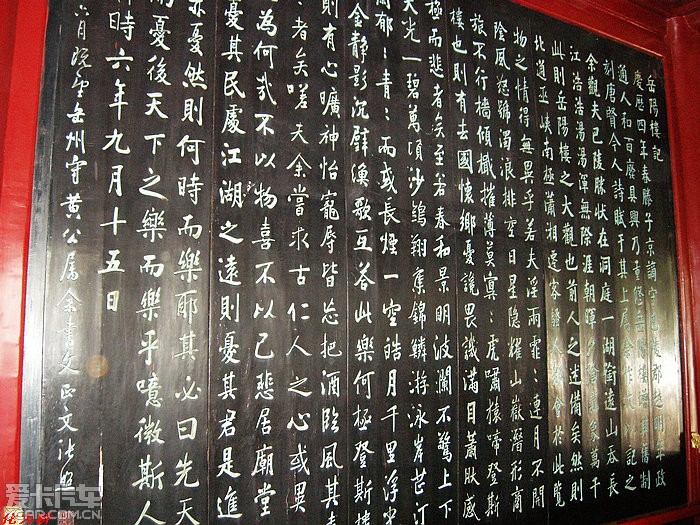 岳陽樓記
慶曆四年春滕子京謫守巴陵郡越明年政
通人和百廢具興乃重修岳陽樓增其舊制
刻唐賢今人詩賦于其上屬余作文以記之
余觀夫巴陵勝狀在洞庭一湖銜遠山吞長
江浩浩湯湯渾無際涯朝暉夕陰氣象萬千
此則岳陽樓之大觀也前人之述備矣然則
北通巫峽南極瀟湘遷客騷人多會於此覽
物之情得無異乎若夫淫雨霏:連月不開
陰風怒號濁浪排空日星隱耀山嶽潛形商
旅不行檣傾檝摧薄莫冥:虎嘯猿啼登斯
樓也則有去國懷鄉憂讒畏譏滿目蕭然感
極而悲者矣至若春和景明波瀾不驚上下
天光一碧萬頃沙鷗翔集錦鱗游泳岸芷汀
郁:青:而或長煙一空皓月千里浮光
金靜影沉璧漁歌互答此樂何極登斯樓
則有心曠神怡寵辱皆忘把酒臨風其喜
者矣嗟夫余嘗求古仁人之心或異
為何哉不以物喜不以己悲居廟堂
憂其民處江湖之遠則憂其君是進
亦憂然則何時而樂耶其必曰先天
而憂後天下之樂而樂乎噫微斯人
時六年九月十五日
六月岳州守黃公屬余書文正文張照
爱卡汽车